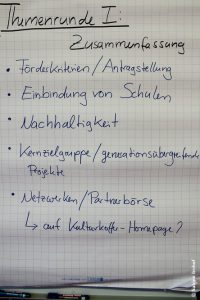 Themenrunde I:
Zusammenfassung
• Förderkriterien/Antragstellung
• Einbindung von Schulen
• Nachhaltigkeit
• Kernzielgruppe/generationsübergreifende
Projekte
• Netzwerken/Partnerbörse
↳ auf Kulturkoffer-Homepage?